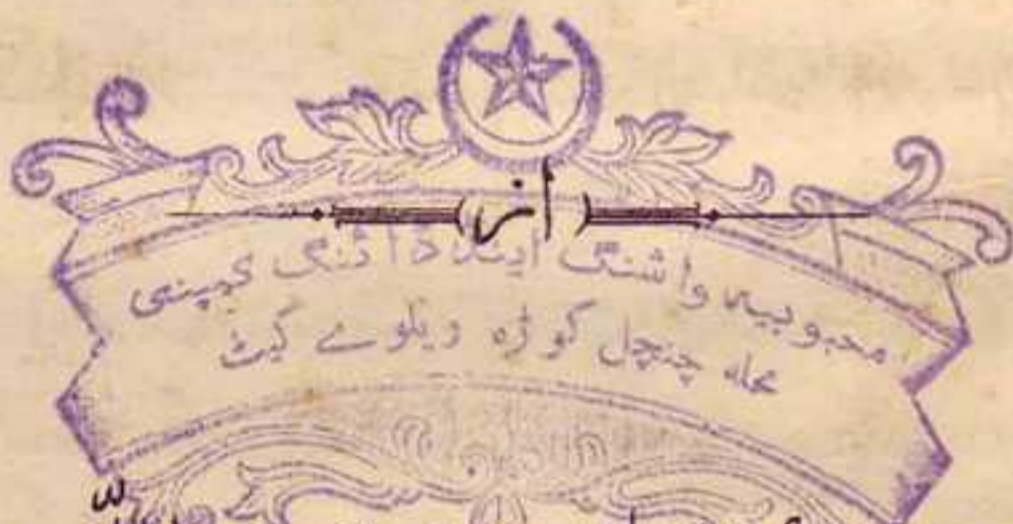 از
محبوبیہ واشنگ اینڈ ڈائنگ کمپنی
محلہ چنچل گوڑہ ریلوے گیٹ